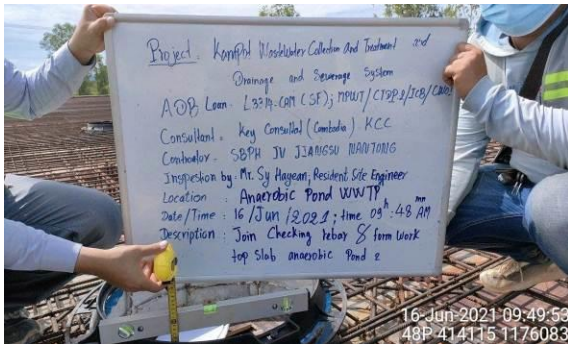 Project. Kampot Wastewater Collection And Treatment and
Drainage and Sewerage System
ADB Loan. L3314-CAM (SF); MPWT/CTDP2/ICB/CW02
Consultant. Key Consultant (Cambodia) KCC
Contractor. SBPH JV JIANGSU NANTONG
Inspection by: Mr. Sy Hagean; Resident Site Engineer
Location : Anaerobic Pond WWTP
Date/Time : 16/Jun/2021; time 09h:48mn AM
Description : Join Checking rebar & form work
top slab anaerobic Pond 2
16-Jun-2021 09:49:53
48P 414115 1176083